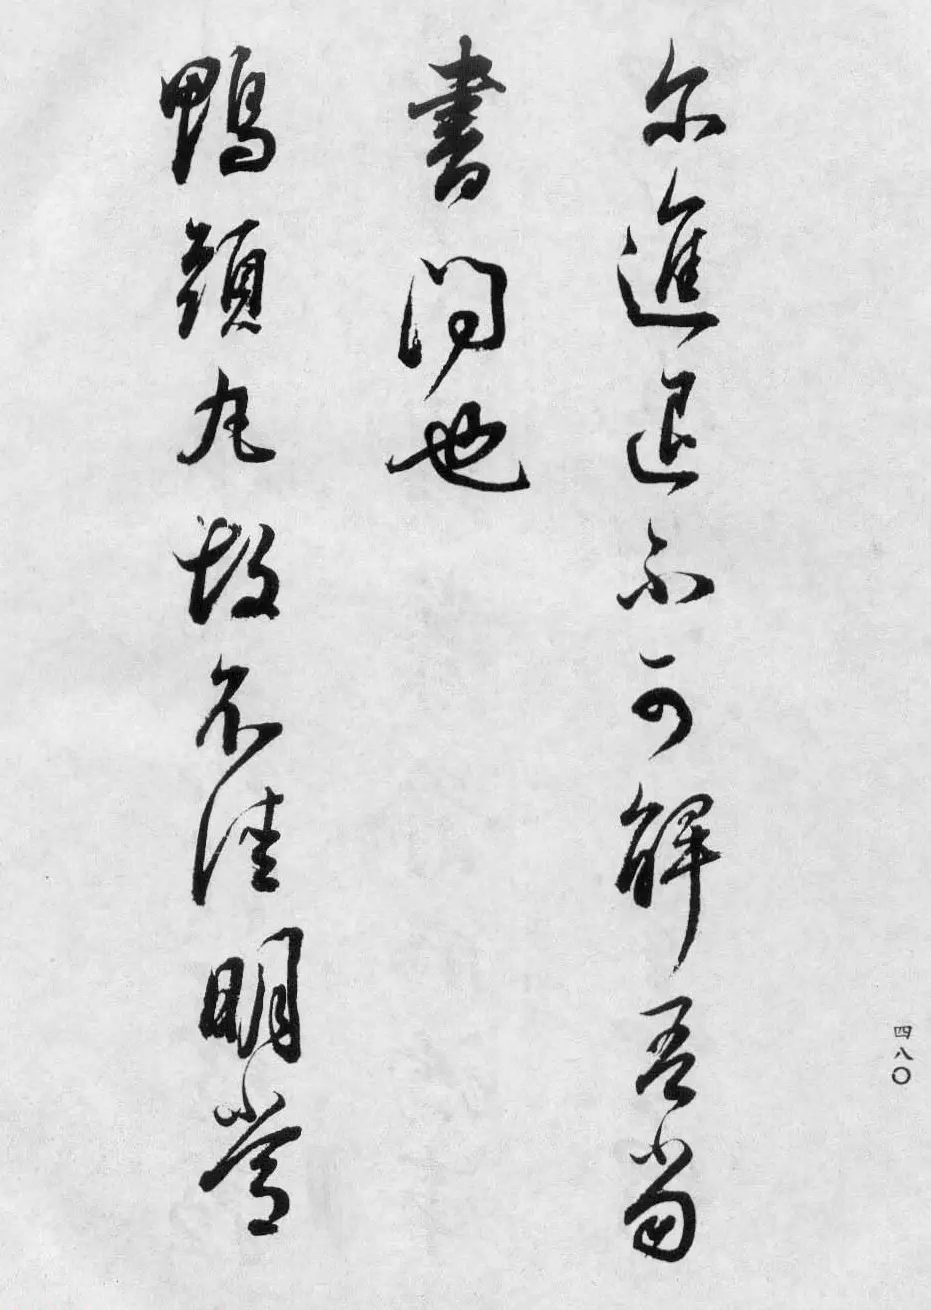 尔進退不可解吾當
書問也
鴨頭丸故不佳明當
四八〇